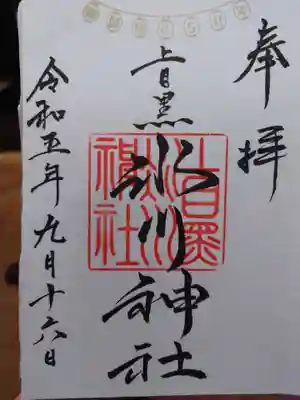 奉拝
上目黒
氷川神社
上目黒
氷川
神社
令和五年九月十六日